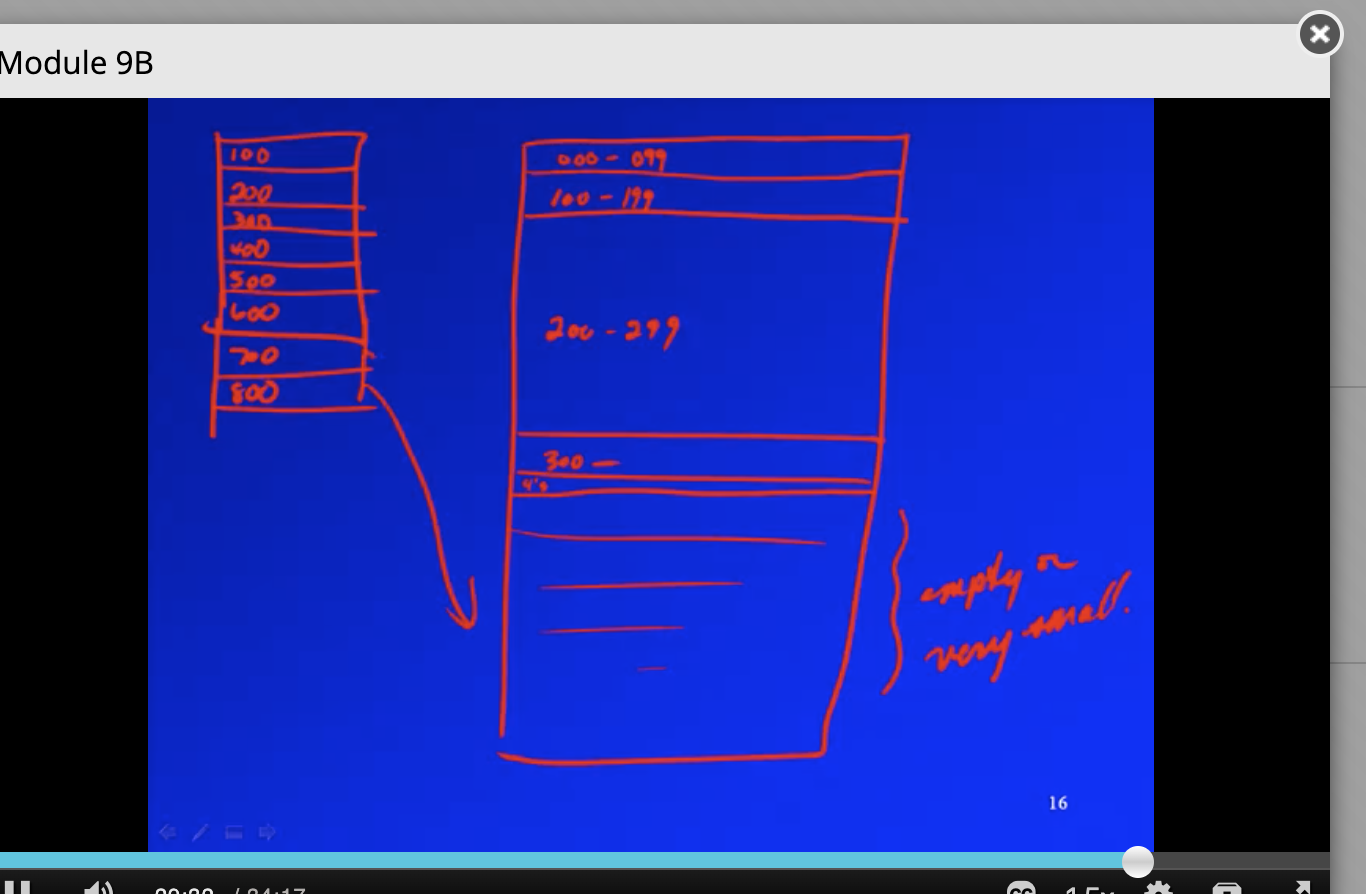 Module 9B
100
200
300
400
500
600
700
800
000 - 099
100 - 199
200 - 299
300 —
4's
empty or
very small.
16
CC
1.5x